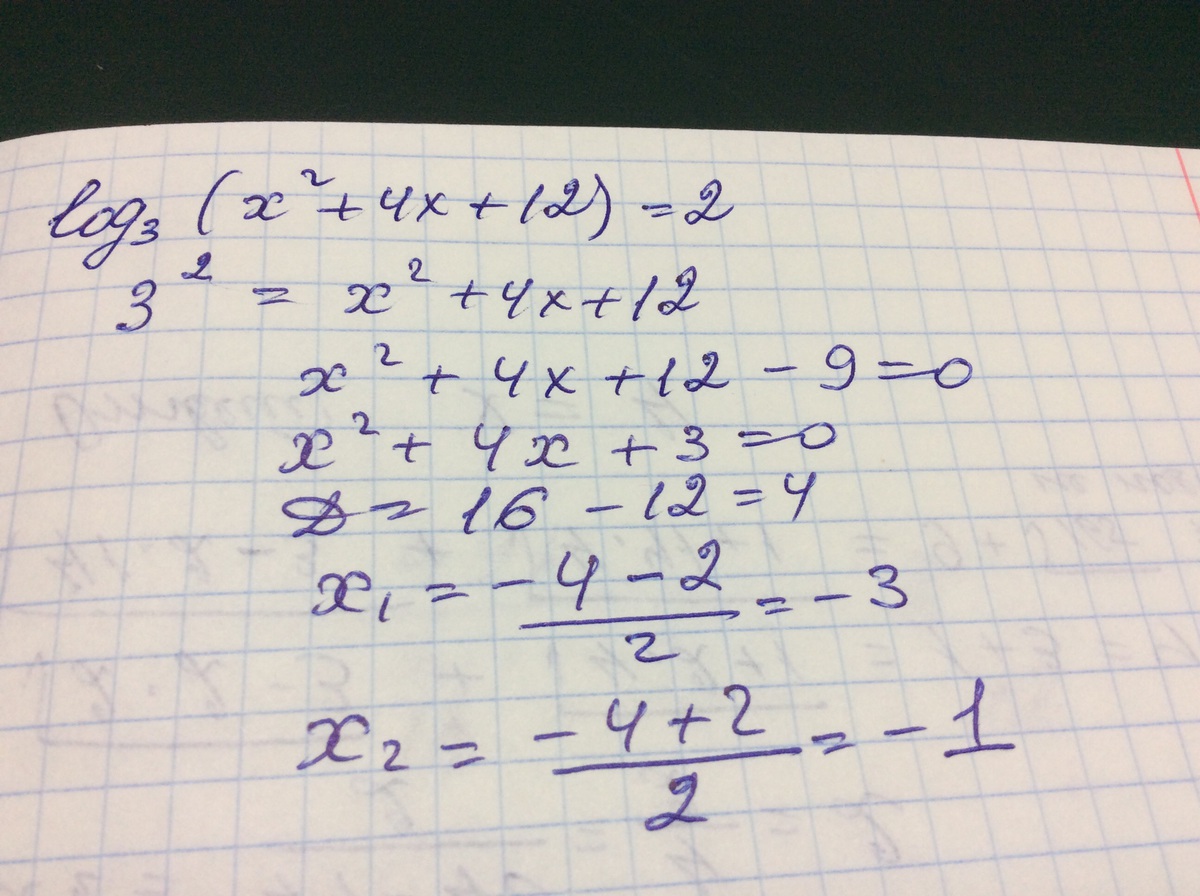 log₃ (x² + 4x + 12) = 2
3² = x² + 4x + 12
x² + 4x + 12 - 9 = 0
x² + 4x + 3 = 0
D = 16 - 12 = 4
x₁ = (-4 - 2)/2 = -3
x₂ = (-4 + 2)/2 = -1